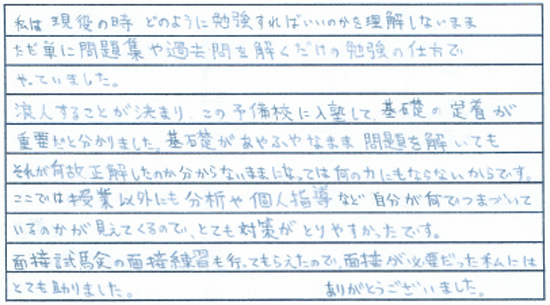 私は現役の時 どのように勉強すればいいのかを理解しないまま
ただ単に問題集や過去問を解くだけの勉強の仕方で
やっていました。
浪人することが決まり この予備校に入塾して、基礎の定着が
重要だと分かりました。基礎があやふやなまま 問題を解いても
それが何故正解したのか分からないままになっては何の力にもならないからです。
ここでは授業以外にも分析や個人指導など自分が何でつまづいて
いるのかが見えてくるので、とても対策がとりやすかったです。
面接試験の面接練習も行ってもらえたので、面接が必要だった私には
とても助りました。 ありがとうございました。